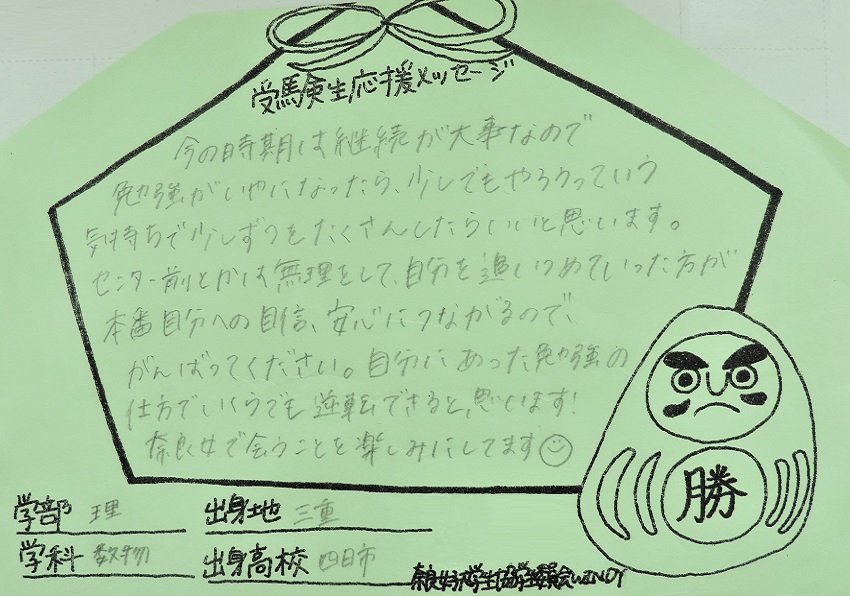 受験生応援メッセージ
今の時期は継続が大事なので
勉強がいやになったら、少しでもやろうっていう
気持ちで少しずつをたくさんしたらいいと思います。
センター前とかは無理をして、自分を追いつめていった方が
本番自分への自信、安心につながるので、
がんばってください。自分にあった勉強の
仕方でいくらでも逆転できると思います!
奈良女で会うことを楽しみにしてます
勝
学部 理 出身地 三重
学科 数物 出身高校 四日市
奈良女子大学生協学生委員会WINDY